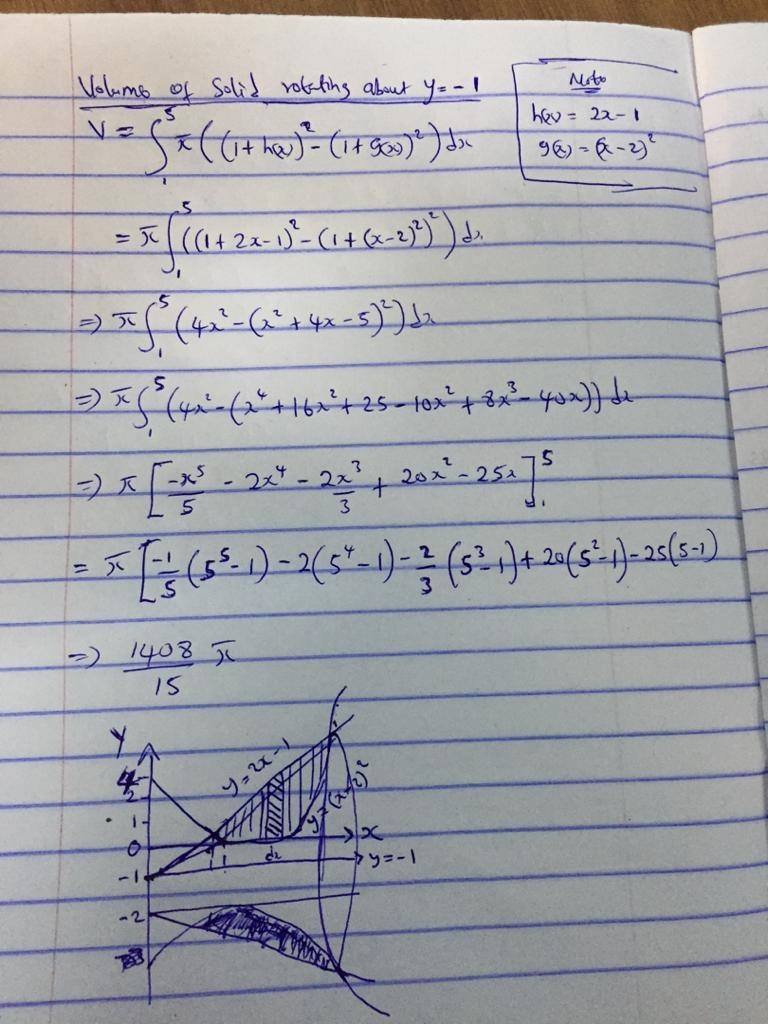 Volume of Solid rotating about y = -1
Note
h(x) = 2x - 1
g(x) = (x-2)²
V = ∫₁⁵ π((1+h(x))² - (1+g(x))²) dx
= π∫₁⁵ ((1+2x-1)² - (1+(x-2)²)²) dx
=> π∫₁⁵ (4x² - (x²+4x-5)²) dx
=> π∫₁⁵ (4x² - (x⁴+16x²+25-10x²+8x³-40x)) dx
=> π[-x⁵/5 - 2x⁴ - 2x³/3 + 20x² - 25x]₁⁵
= π[-1/5 (5⁵-1) - 2(5⁴-1) - 2/3 (5³-1) + 20(5²-1) - 25(5-1)
=> 1408/15 π
Y
4
2
1
0
-1
-2
y = 2x-1
y = (x-2)²
1
dx
x
y = -1